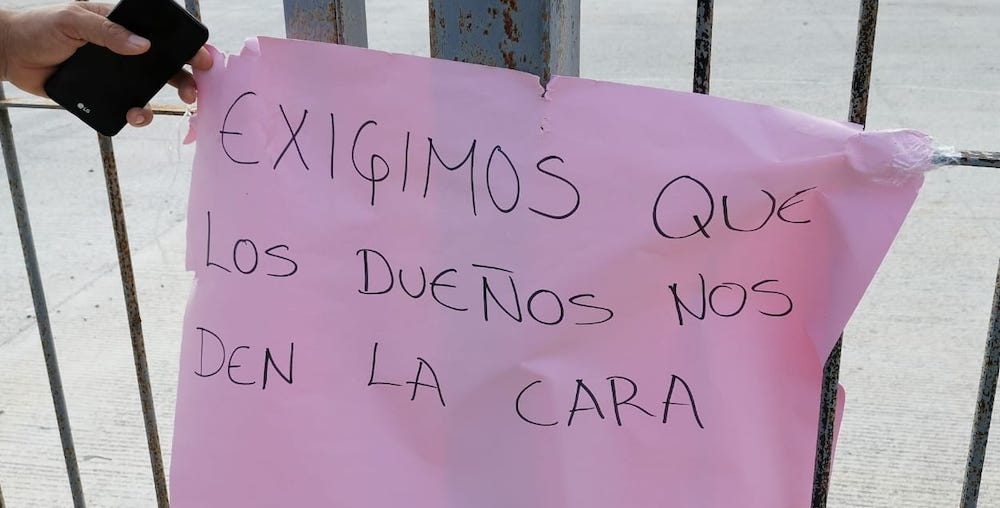 LG
EXIGIMOS QUE
LOS DUEÑOS NOS
DEN LA CARA